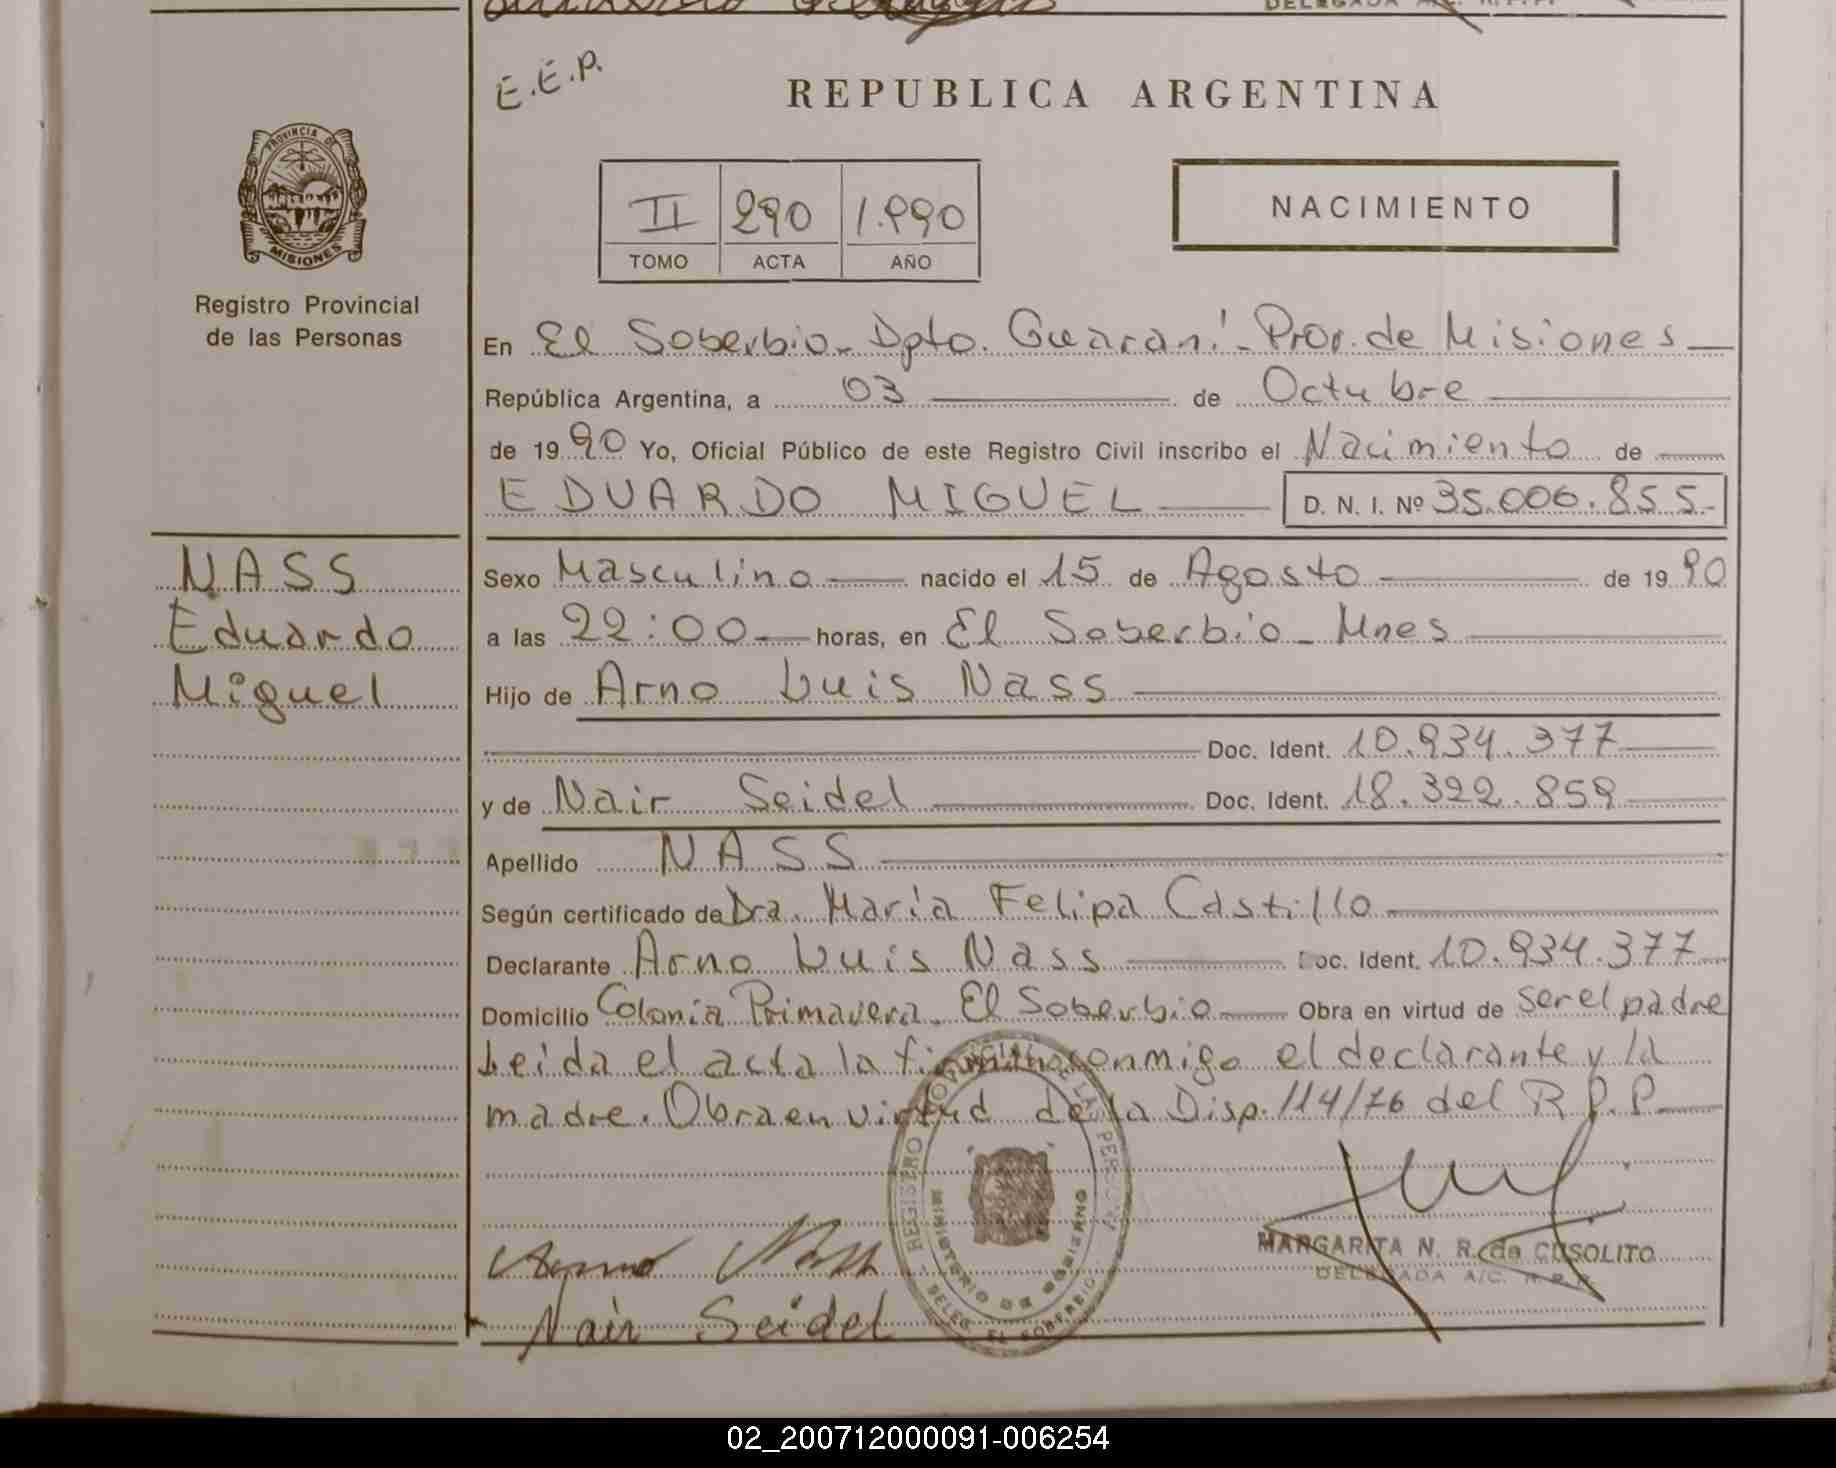 DELEGADA A/C. R.P.P.
E.E.P.
REPUBLICA ARGENTINA
PROVINCIA DE
MISIONES
Registro Provincial
de las Personas
II 290 1.990
TOMO ACTA AÑO
NACIMIENTO
En El Soberbio - Dpto. Guaraní - Prov. de Misiones
República Argentina, a 03 de Octubre
de 19 90 Yo, Oficial Público de este Registro Civil inscribo el Nacimiento de
EDUARDO MIGUEL D. N. I. Nº 35.006.855.-
NASS
Eduardo
Miguel
Sexo Masculino nacido el 15 de Agosto de 19 90
a las 22:00 horas, en El Soberbio - Mnes
Hijo de Arno Luis Nass
Doc. Ident. 10.934.377
y de Nair Seidel Doc. Ident. 18.322.859
Apellido NASS
Según certificado de Dra. María Felipa Castillo
Declarante Arno Luis Nass Doc. Ident. 10.934.377
Domicilio Colonia Primavera. El Soberbio Obra en virtud de ser el padre
Leida el acta la firman conmigo el declarante y la
madre. Obra en virtud de la Disp. 114/76 del R.P.P
REGISTRO PROVINCIAL DE LAS PERSONAS
MINISTERIO DE GOBIERNO
DELEG. EL SOBERBIO
Arno Nass
Nair Seidel
MARGARITA N. R. de CUSOLITO
DELEGADA A/C. R.P.P.
02_200712000091-006254